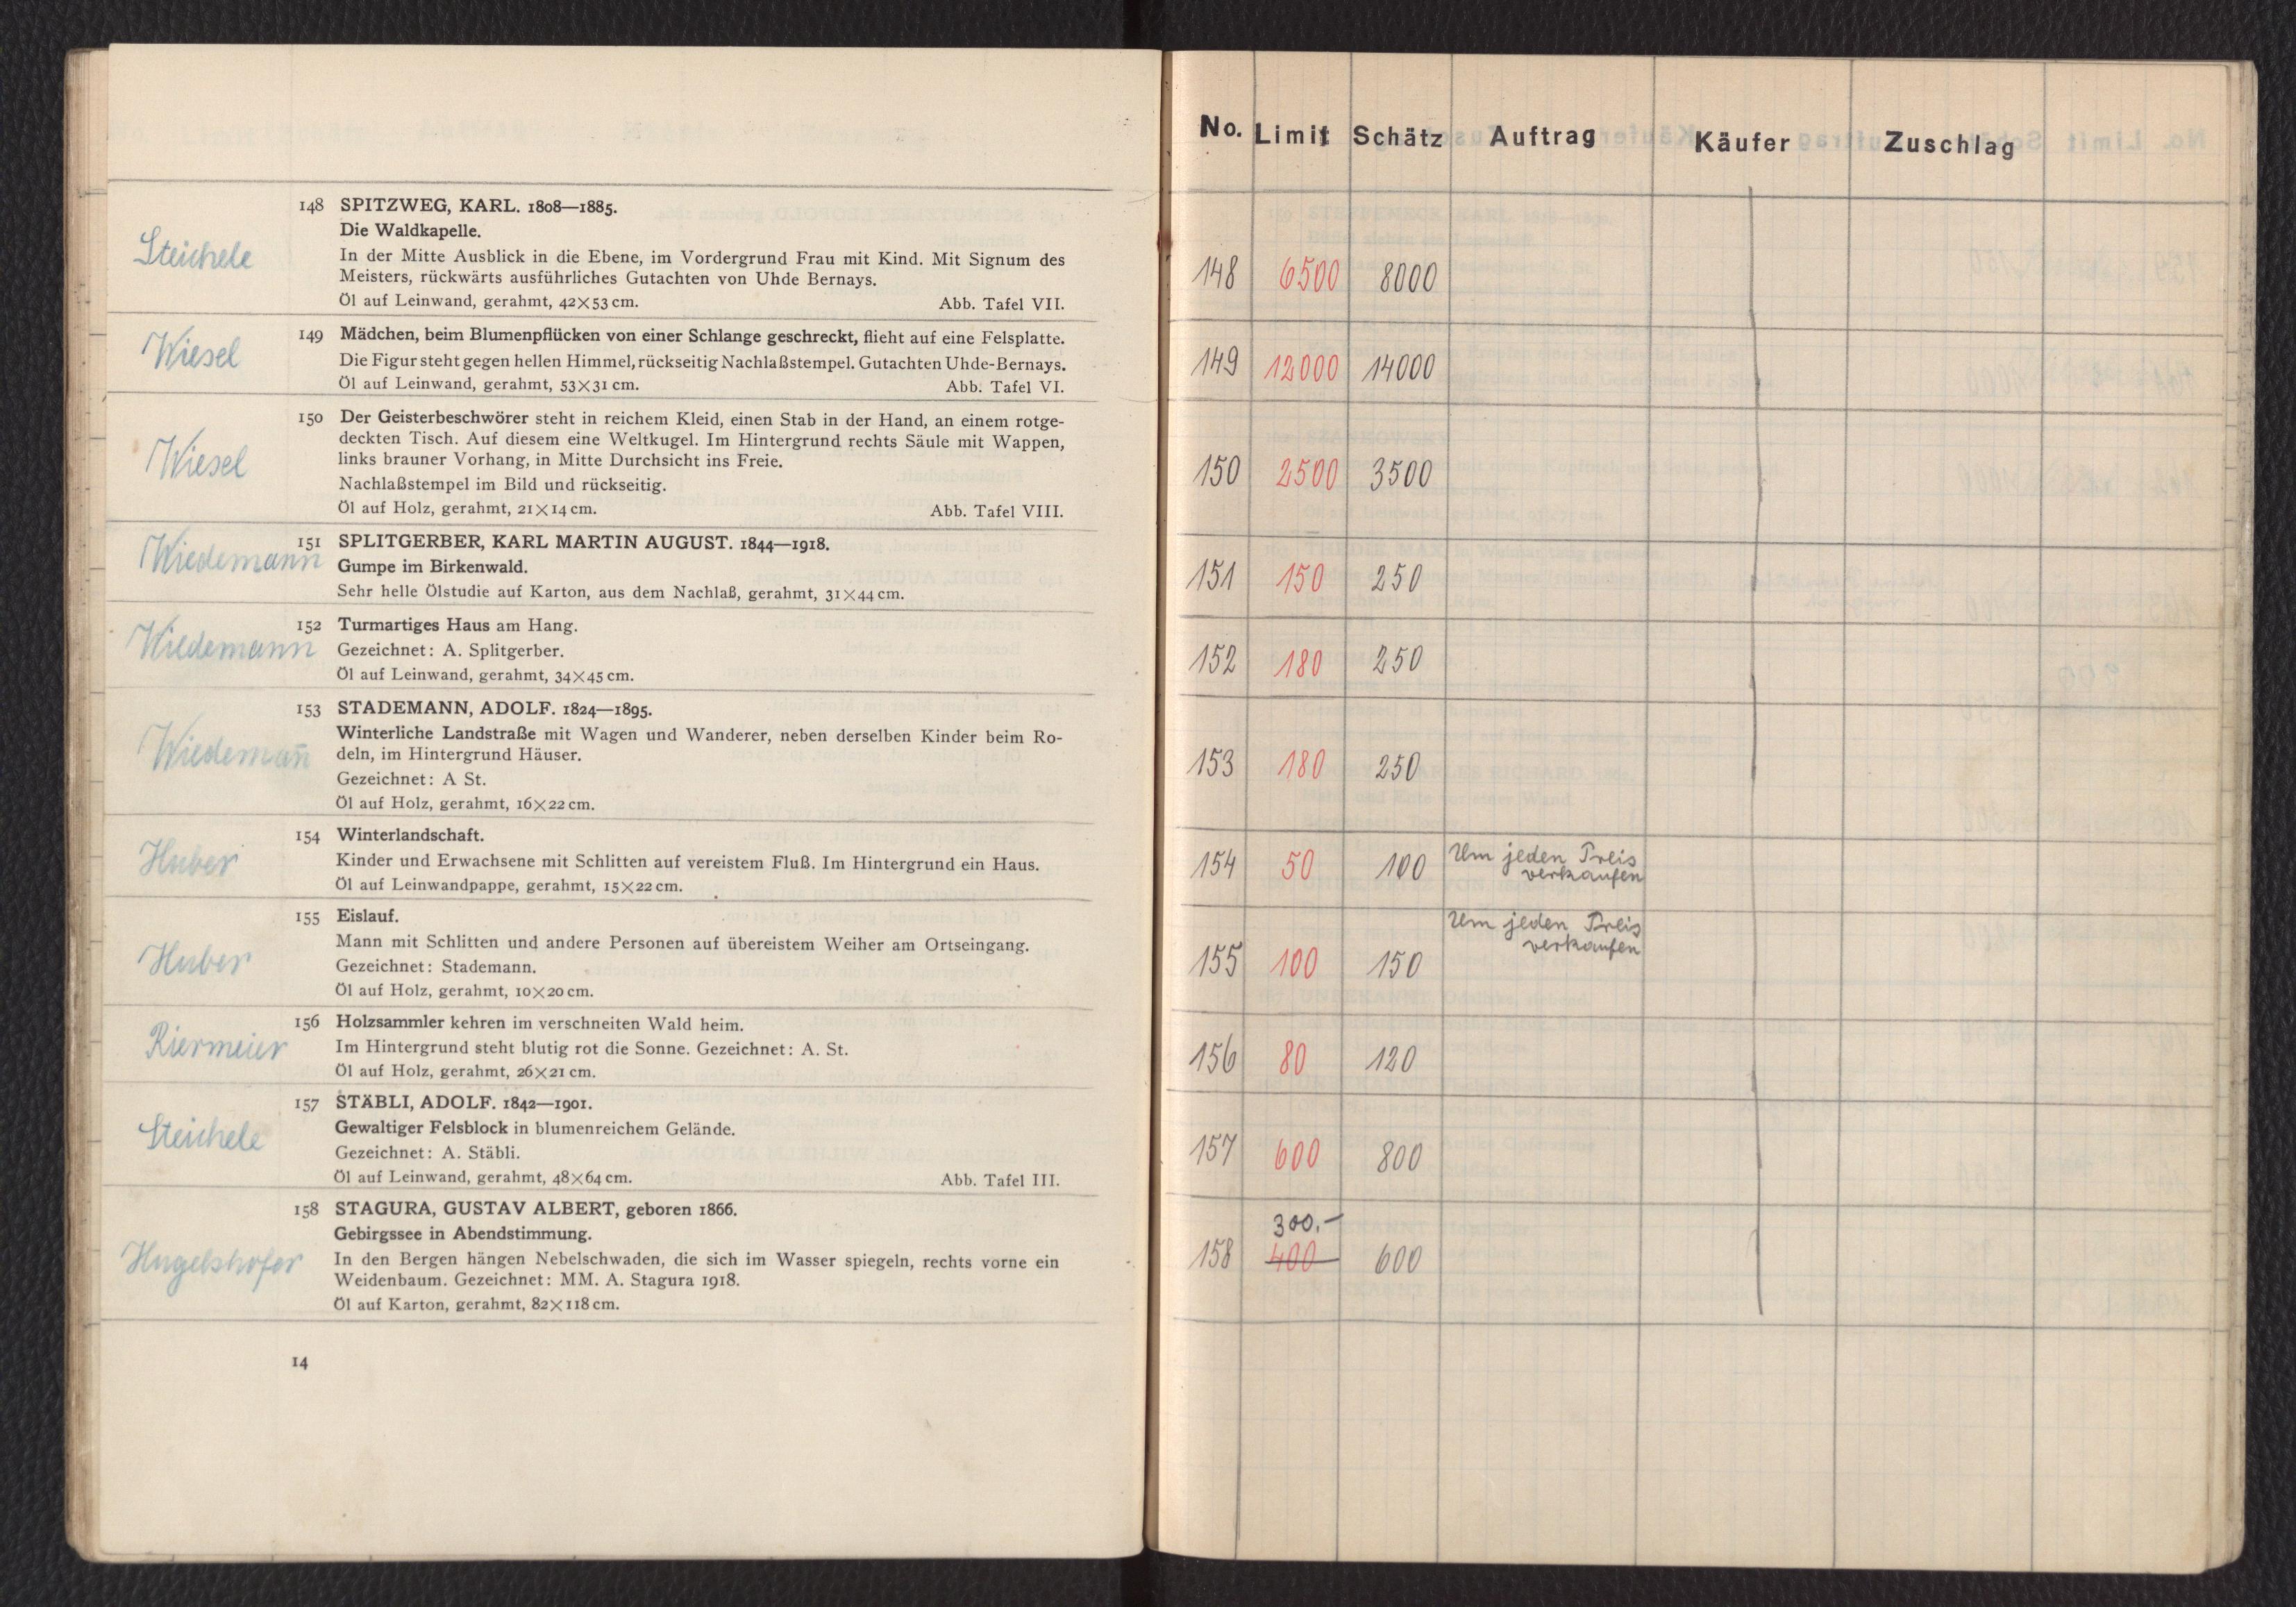 148 SPITZWEG, KARL. 1808—1885.
Die Waldkapelle.
Steichele
In der Mitte Ausblick in die Ebene, im Vordergrund Frau mit Kind. Mit Signum des
Meisters, rückwärts ausführliches Gutachten von Uhde Bernays.
Öl auf Leinwand, gerahmt, 42×53 cm. Abb. Tafel VII.
149 Mädchen, beim Blumenpflücken von einer Schlange geschreckt, flieht auf eine Felsplatte.
Wiesel
Die Figur steht gegen hellen Himmel, rückseitig Nachlaßstempel. Gutachten Uhde-Bernays.
Öl auf Leinwand, gerahmt, 53×31 cm. Abb. Tafel VI.
150 Der Geisterbeschwörer steht in reichem Kleid, einen Stab in der Hand, an einem rotge-
deckten Tisch. Auf diesem eine Weltkugel. Im Hintergrund rechts Säule mit Wappen,
Wiesel
links brauner Vorhang, in Mitte Durchsicht ins Freie.
Nachlaßstempel im Bild und rückseitig.
Öl auf Holz, gerahmt, 21×14 cm. Abb. Tafel VIII.
151 SPLITGERBER, KARL MARTIN AUGUST. 1844—1918.
Wiedemann
Gumpe im Birkenwald.
Sehr helle Ölstudie auf Karton, aus dem Nachlaß, gerahmt, 31×44 cm.
152 Turmartiges Haus am Hang.
Wiedemann
Gezeichnet: A. Splitgerber.
Öl auf Leinwand, gerahmt, 34×45 cm.
153 STADEMANN, ADOLF. 1824—1895.
Winterliche Landstraße mit Wagen und Wanderer, neben derselben Kinder beim Ro-
Wiedemañ
deln, im Hintergrund Häuser.
Gezeichnet: A St.
Öl auf Holz, gerahmt, 16×22 cm.
154 Winterlandschaft.
Huber
Kinder und Erwachsene mit Schlitten auf vereistem Fluß. Im Hintergrund ein Haus.
Öl auf Leinwandpappe, gerahmt, 15×22 cm.
155 Eislauf.
Mann mit Schlitten und andere Personen auf übereistem Weiher am Ortseingang.
Huber
Gezeichnet: Stademann.
Öl auf Holz, gerahmt, 10×20 cm.
156 Holzsammler kehren im verschneiten Wald heim.
Riermeier
Im Hintergrund steht blutig rot die Sonne. Gezeichnet: A. St.
Öl auf Holz, gerahmt, 26×21 cm.
157 STÄBLI, ADOLF. 1842—1901.
Gewaltiger Felsblock in blumenreichem Gelände.
Steichele
Gezeichnet: A. Stäbli.
Öl auf Leinwand, gerahmt, 48×64 cm. Abb. Tafel III.
158 STAGURA, GUSTAV ALBERT, geboren 1866.
Gebirgssee in Abendstimmung.
Hugelshofer
In den Bergen hängen Nebelschwaden, die sich im Wasser spiegeln, rechts vorne ein
Weidenbaum. Gezeichnet: MM. A. Stagura 1918.
Öl auf Karton, gerahmt, 82×118 cm.
14
No. Limit Schätz Auftrag Käufer Zuschlag
148 6500 8000
149 12000 14000
150 2500 3500
151 150 250
152 180 250
153 180 250
154 50 100 Um jeden Preis
verkaufen
Um jeden Preis
verkaufen
155 100 150
156 80 120
157 600 800
300.-
158 400 600